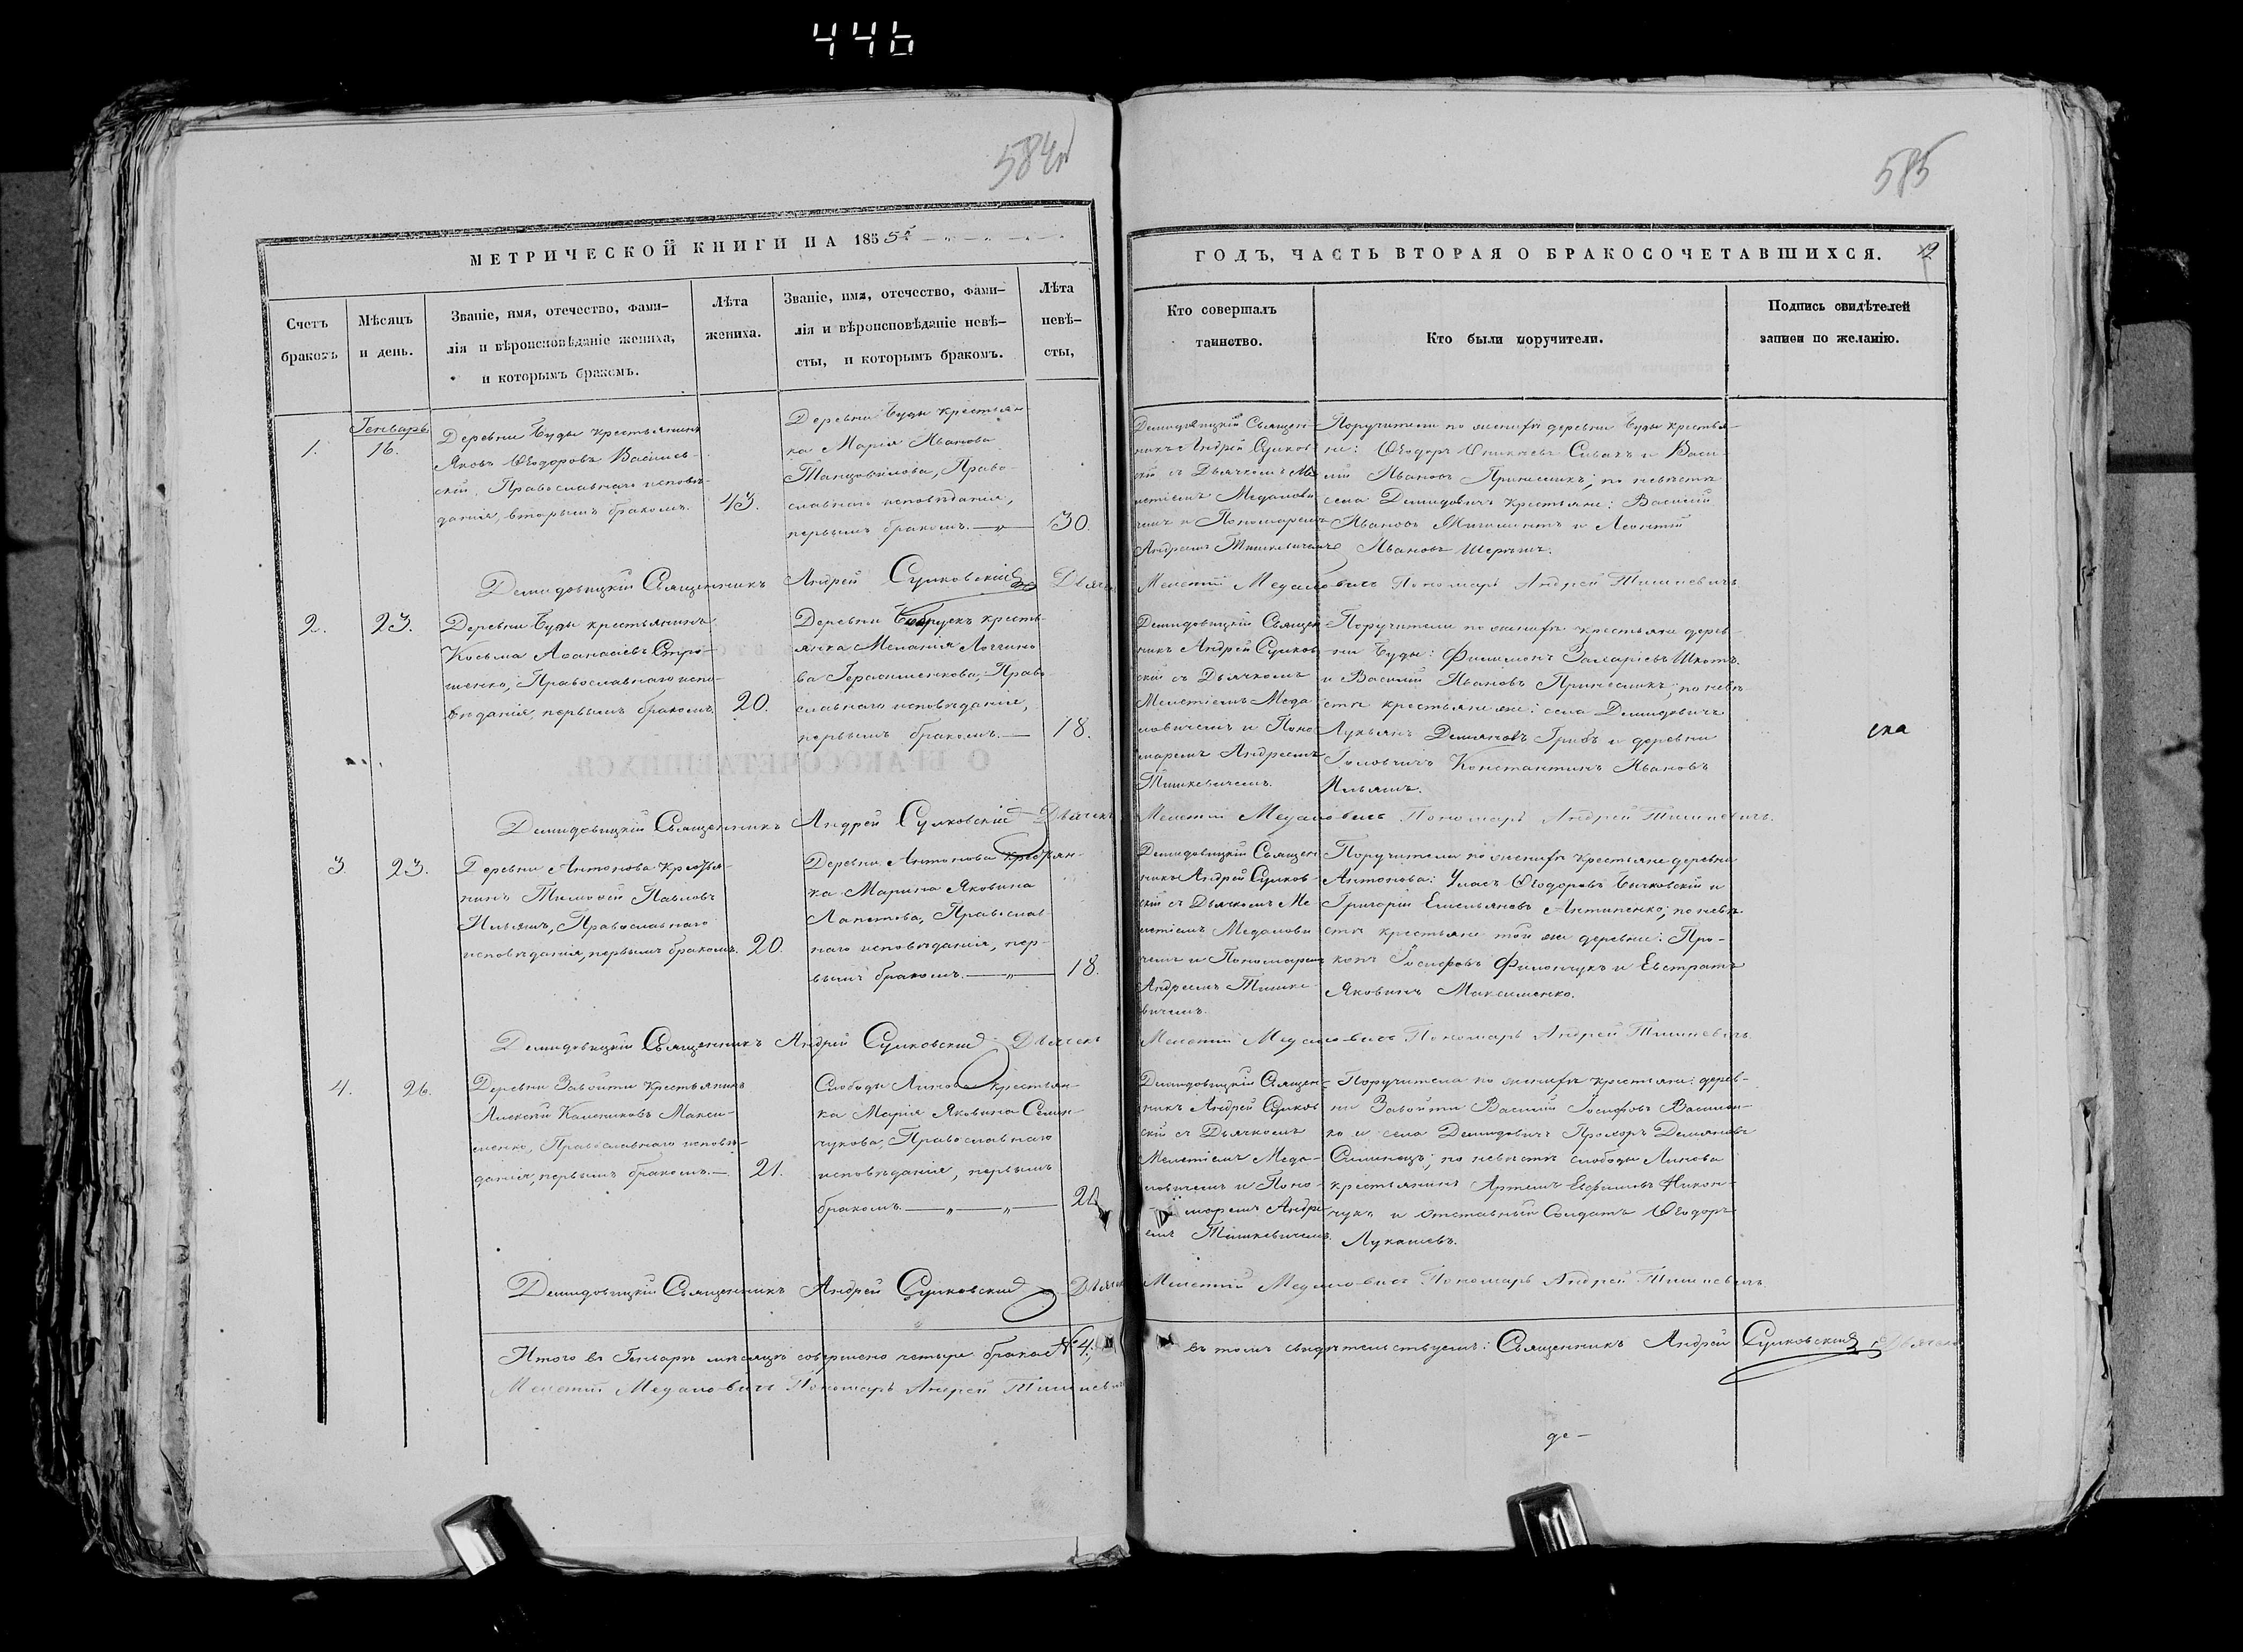 446
584
585
МЕТРИЧЕСКОЙ КНИГИ НА 1855й
ГОДЪ, ЧАСТЬ ВТОРАЯ О БРАКОСОЧЕТАВШИХСЯ.
Счетъ
браковъ
Мѣсяцъ
и день.
Званіе, имя, отечество, фами-
лія и вѣроисповѣданіе жениха,
и которымъ бракомъ.
Лѣта
жениха.
Званіе, имя, отечество, фами-
лія и вѣроисповѣданіе невѣ-
сты, и которымъ бракомъ.
Лѣта
невѣ-
сты,
Кто совершалъ
таинство.
Кто были поручители.
Подпись свидѣтелей
записи по желанію.
1.
Генварь
16.
Деревни Буды крестьянинъ
Яковъ Ѳеодоровъ Василев-
скій, Православнаго исповѣ-
данія, вторымъ бракомъ.
43.
Деревни Буды крестьян
ка Марія Иванова
Право-
славнаго исповѣданія,
первымъ бракомъ.
30.
Демидовицкій Священ-
никъ Андрей Сулков
скій съ Дьячкомъ Ме
летіемъ Медалови
чемъ и Пономаремъ
Андреемъ Тишкевичемъ
Поручители по женихѣ деревни Буды крестья-
не: Ѳеодоръ Сивакъ и Васи-
лій Ивановъ по невѣстѣ
села Демидовичъ крестьяне: Василій
Ивановъ и Леонтій
Ивановъ
Демидовицкій Священникъ Андрей Сулковскій Дьячекъ
Мелетій Медаловичъ Пономарь Андрей Тишкевичъ
2.
23.
Деревни Буды крестьянинъ
Косьма Аѳанасіевъ
Православнаго испо-
вѣданія, первымъ бракомъ.
20.
Деревни крестья
янка Меланія Логгино
ва Герасименкова, Право
славнаго исповѣданія,
первымъ бракомъ.
18.
Демидовицкій Священ
никъ Андрей Сулков
скій съ Дьячкомъ
Мелетіемъ Меда
ловичемъ и Поно
маремъ Андреемъ
Тишкевичемъ.
Поручители по женихѣ крестьяне дерев-
ни Буды: Филимонъ Захаріевъ
и Василій Ивановъ по невѣ
стѣ крестьяне же: села Демидовичъ
Лукьянъ Демяновъ Грибъ и деревни
Константинъ Ивановъ
Ильяшъ.
ска
Демидовицкій Священникъ Андрей Сулковскій Дьячекъ
Мелетій Медаловичъ Пономарь Андрей Тишкевичъ.
3.
23.
Деревни Антонова крестья-
нинъ Тимоѳей Павловъ
Ильяшъ, Православнаго
исповѣданія, первымъ бракомъ.
20.
Деревни Антонова крестьян-
ка Марина Яковина
Лаптева, Православ
наго исповѣданія, пер-
вымъ бракомъ.
18.
Демидовицкій Священ
никъ Андрей Сулков
скій съ Дьячкомъ Ме
летіемъ Медалови
чемъ и Пономаремъ
Андреемъ Тишке
вичемъ.
Поручители по женихѣ крестьяне деревни
Антонова: Уласъ Ѳеодоровъ Бичковскій и
Григорій Емельяновъ Антипенко; по невѣ
стѣ крестьяне той же деревни: Про-
копъ Іосифовъ Филончукъ и Евстратъ
Яковинъ Максименко.
Демидовицкій Священникъ Андрей Сулковскій Дьячекъ
Мелетій Медаловичъ Пономарь Андрей Тишкевичъ.
4.
26.
Деревни Завойти крестьянинъ
Алексій Каленниковъ Макси-
менко, Православнаго исповѣ-
данія, первымъ бракомъ.
21.
Слободы Липова крестьян-
ка Марія Яковина Семен-
чукова, Православнаго
исповѣданія, первымъ
бракомъ.
Демидовицкій Священ-
никъ Андрей Сулков
скій съ Дьячкомъ
Мелетіемъ Меда-
ловичемъ и Поно-
маремъ Андре-
емъ Тишкевичемъ.
Поручители по женихѣ крестьяне: дерев-
ни Завойти Василій Іосифовъ Василен-
ко и села Демидовичъ Прохоръ Демяновъ
по невѣстѣ слободы Липова
крестьянинъ Артемъ Евфимовъ Никон-
чукъ и отставный Солдатъ Ѳеодоръ
Лукашевъ.
Демидовицкій Священникъ Андрей Сулковскій Дьячекъ
Мелетій Медаловичъ Пономарь Андрей Тишкевичъ
Итого въ Генварѣ мѣсяцѣ совершено четыре брака №4,
въ томъ свидѣтельствуемъ: Священникъ Андрей Сулковскій Дьячекъ
Мелетій Медаловичъ Пономарь Андрей Тишкевичъ
де-